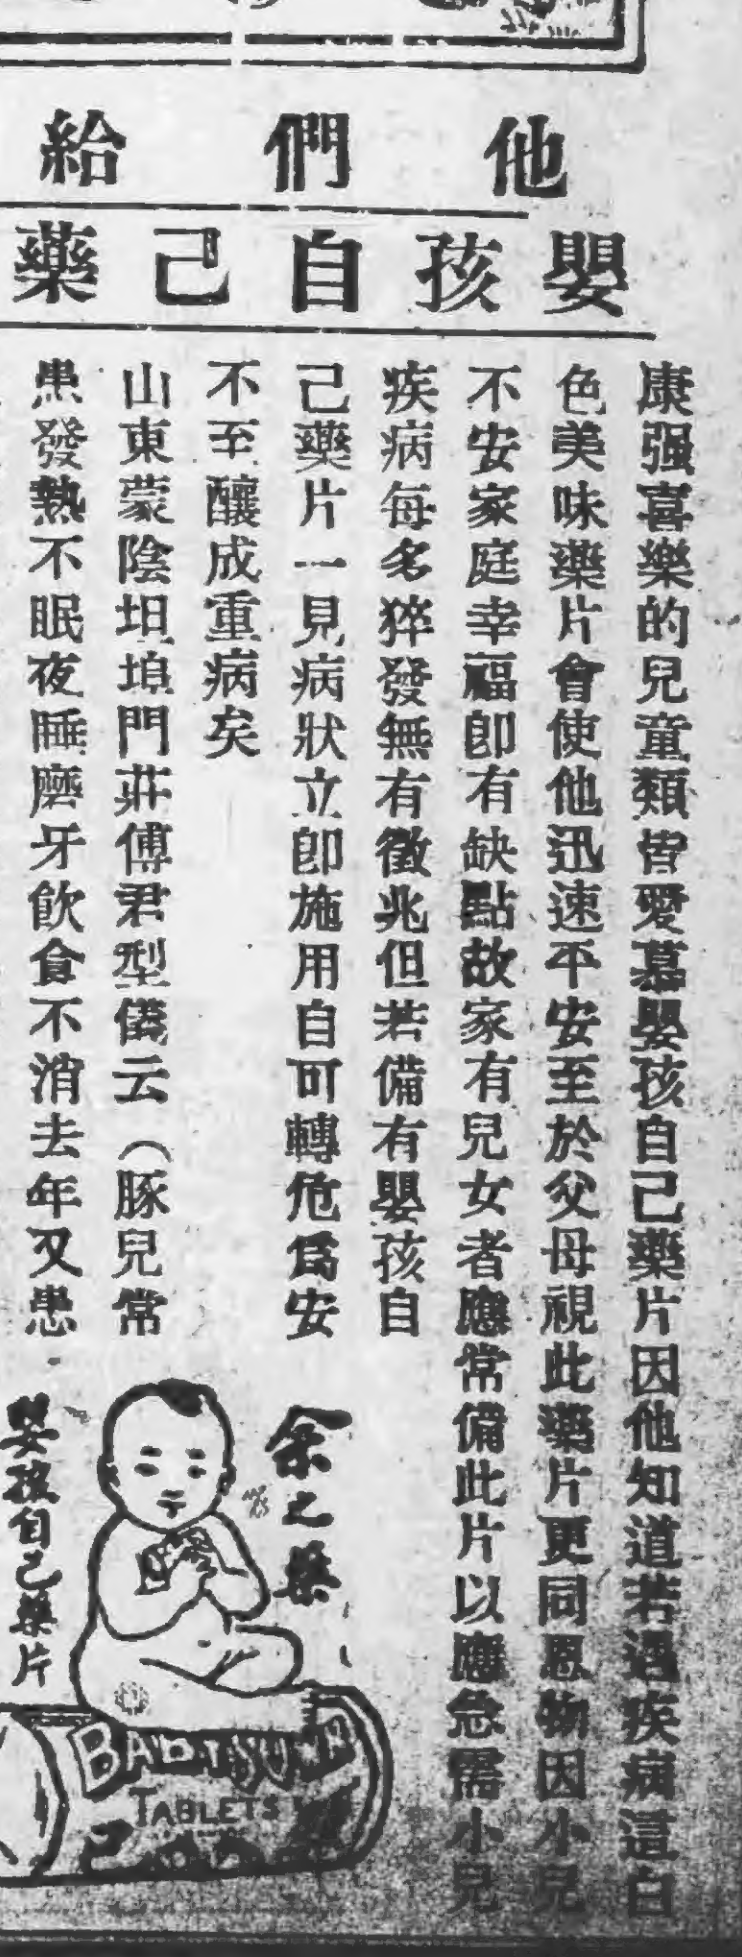 他們給
嬰孩自己藥
康强喜樂的兒童類皆愛慕嬰孩自己藥片因他知道若遇疾病這白
色美味藥片會使他迅速平安至於父母視此藥片更同恩物因小兒
不安家庭幸福卽有缺點故家有兒女者應常備此片以應急需小兒
疾病每多猝發無有徵兆但若備有嬰孩自
己藥片一見病狀立卽施用自可轉危爲安
不至釀成重病矣
山東蒙陰坦埠門莊傅君型儀云（豚兒常
患發熱不眠夜睡磨牙飮食不消去年又患
余之藥
嬰孩自己藥片
TABLETS